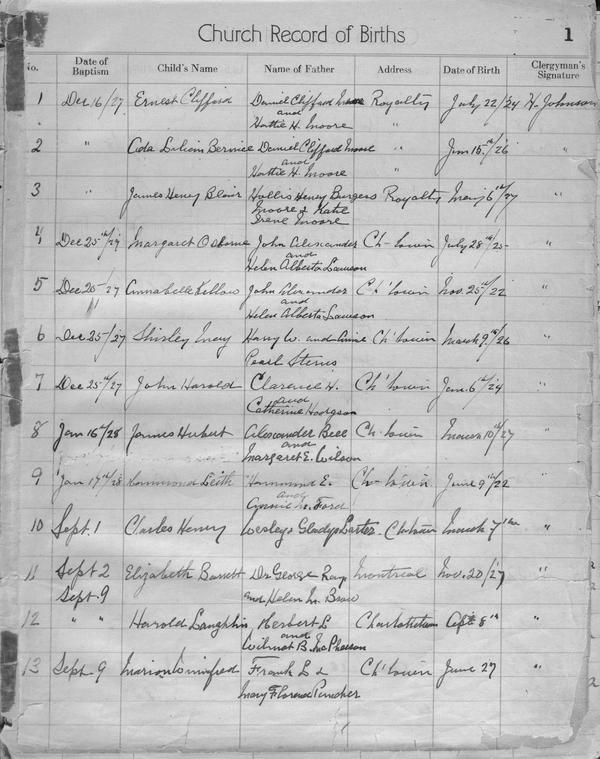 Church Record of Births 1
No. Date of Baptism Child's Name Name of Father Address Date of Birth Clergyman's Signature
1 Dec 16/27 Ernest Clifford Daniel Clifford Moore Royalty July 22/24 H. Johnson
and
Hattie H. Moore "
2 " Ada Lilian Bernice Daniel Clifford Moore " Jan 15th/26 "
and
Hattie H. Moore
3 " James Henry Blair Hollis Henry Burgers Royalty May 6th/27 "
Moore & Katie
Irene Moore
4 Dec 25th/27 Margaret Osborne John Alexander Ch-town July 28th/25 "
and
Helen Alberta Lawson
5 Dec 25/27 Annabelle John Alexander Ch'town Nov. 25th/22 "
and
Helen Alberta Lawson
6 Dec 25/27 Shirley May Harry W. and Annie Ch'town March 9th/26 "
Pearl Sterns
7 Dec 25th/27 John Harold Clarence H. Ch'town Jan. 6th/24 "
and
Catherine Hodgson
8 Jan 16th/28 James Hubert Alexander Bell Ch-town March 10th/27 "
and
Margaret E. Wilson
9 Jan 17th/28 Hammond Leith Hammond E. Ch-town June 9th/22 "
and
M. Ford
10 Sept. 1 Charles Henry Wesley & Gladys Carter Ch-town March 7th "
11 Sept 2 Elizabeth Barrett Dr George Ray Montreal Nov. 20/27 "
Sept. 9 and Helen M.
12 " " Harold Laughlin Herbert L Charlottetown Apt 8th "
and
Wilmot B. McPherson
13 Sept 9 Marion Winnifred Frank L & Ch'town June 27 "
Mary Florence